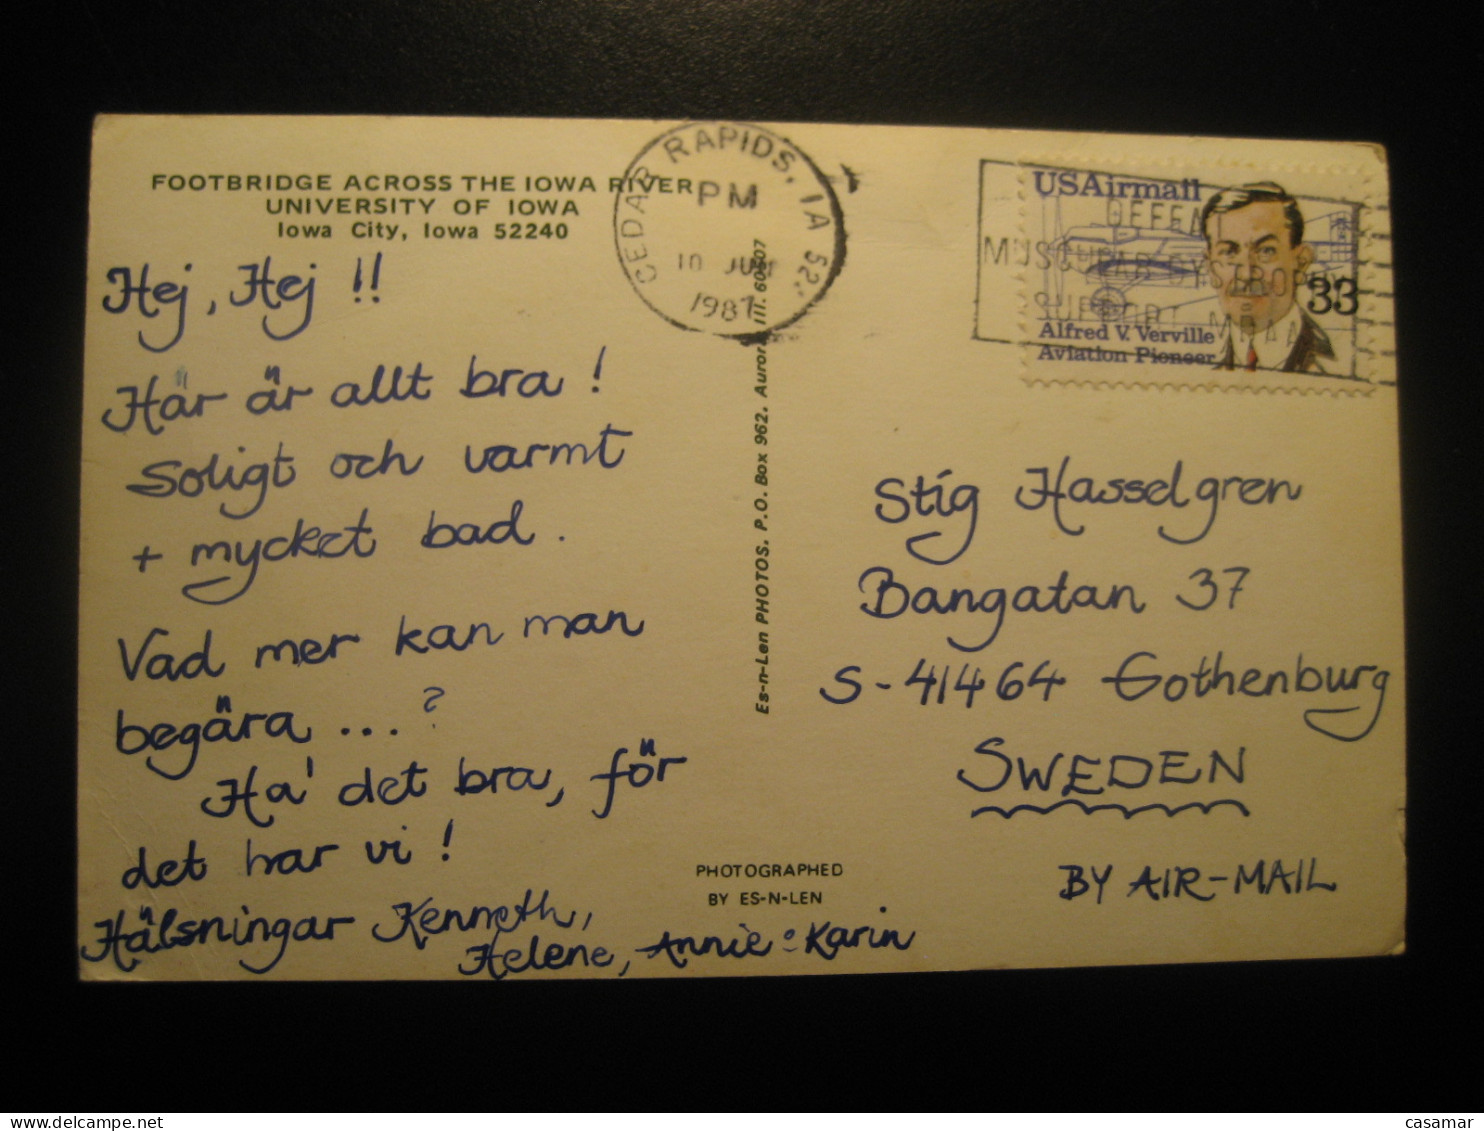 FOOTBRIDGE ACROSS THE IOWA RIVER
UNIVERSITY OF IOWA
Iowa City, Iowa 52240
Hej, Hej !!
Här är allt bra !
Soligt och varmt
+ mycket bad.
Vad mer kan man
begära ...?
Ha' det bra, för
det har vi !
Hälsningar Kenneth,
Helene, Annie o Karin
Es-n-Len PHOTOS. P.O. Box 962. Aurora Ill. 60507
PHOTOGRAPHED
BY ES-N-LEN
CEDAR RAPIDS, IA
PM
10 JUN
1987
USAirmail
33
Alfred V. Verville
Aviation Pioneer
DEFEAT
MUSCULAR DYSTROPHY
SUPPORT MDAA
Stig Hasselgren
Bangatan 37
S-41464 Gothenburg
SWEDEN
BY AIR-MAIL
casamar
delcampe.net